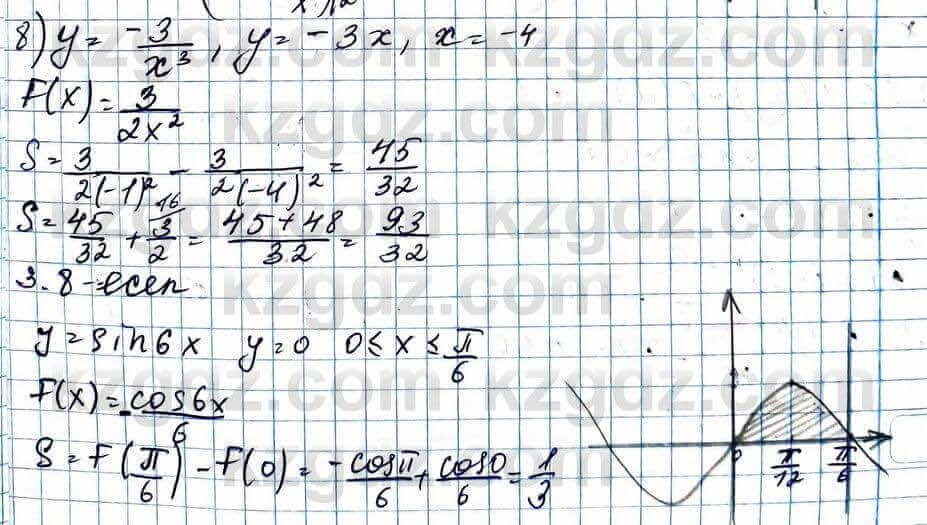 8) y = -3/x³, y = -3x, x = -4
F(x) = 3/2x²
S = 3/2(-1)² - 3/2(-4)² = 45/32
S = 45/32 + 3/2 (16) = 45+48/32 = 93/32
3.8-есеп
y = sin6x y = 0 0 ≤ x ≤ π/6
F(x) = -cos6x/6
S = F(π/6) - F(0) = -cosπ/6 + cos0/6 = 1/3
0 π/12 π/6
kzgdz.com